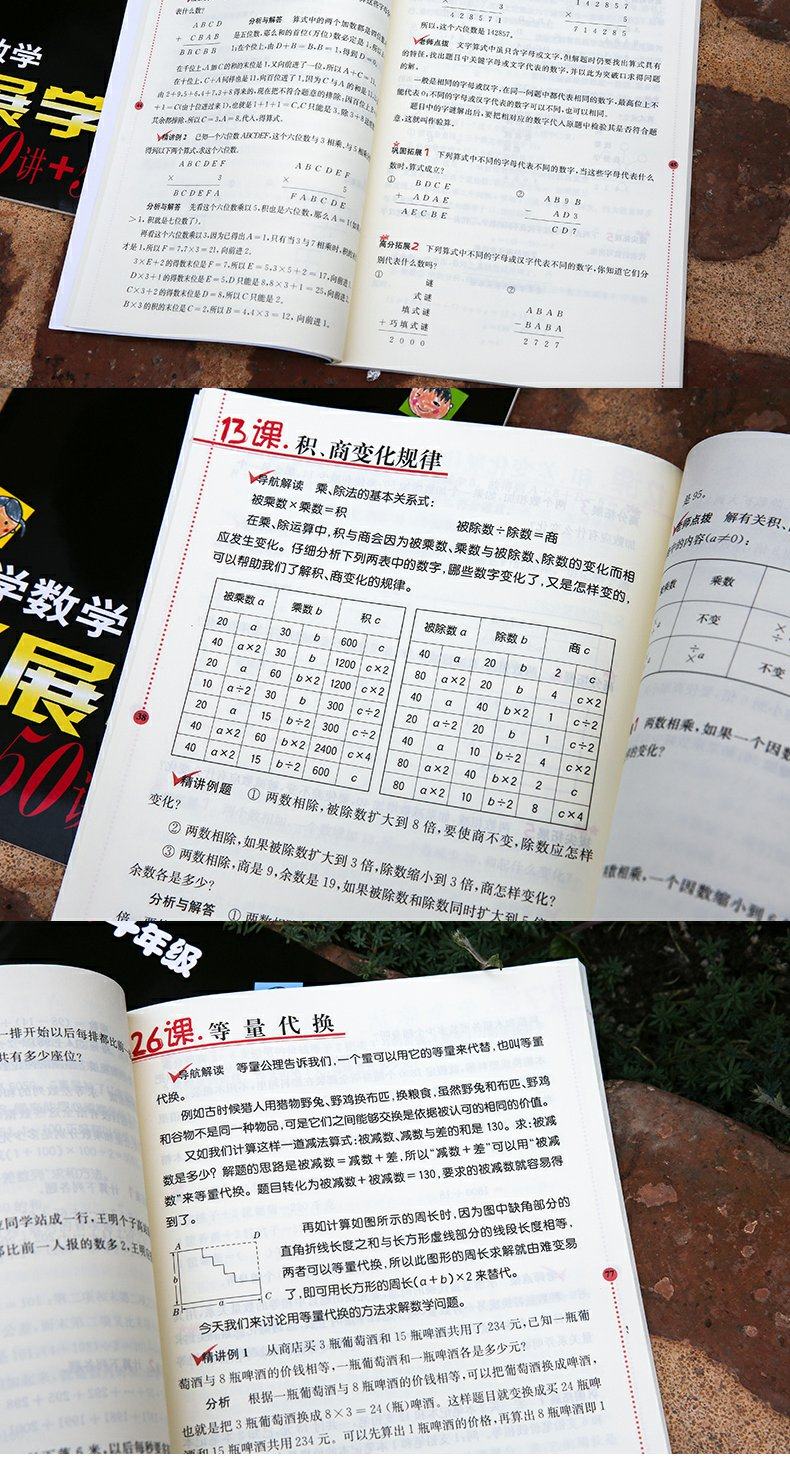 数学
表什么数?
A B C D
+ C B A B
B B C B B
分析与解答 算式中的两个加数都是四位
是五位数,那么和的首位(万位)数必定是1,所以
1,在个位上,由D+B=B,B=1,得到D=0。
在千位上,A加C的和的末位是1,又向前进了一位,所以A+C=11。
在十位上,C+A同样也是11,向百位进了1,因为C与A的和是11,
由2+9、5+6、4+7、3+8得来的,现在把不符合题意的排除:因百位上
+1=C(由十位进过来1),也就是1+1+1=C,C只能是3,除3+8
其余都排除,所以C=3,A=8,代入,得算式。
精讲例2 已知一个六位数ABCDEF,这个六位数与3相乘、与5相乘
得到以下两个算式,求这个六位数。
A B C D E F
× 3
B C D E F A
A B C D E F
× 5
F A B C D E
分析与解答 先看这个六位数乘以5,积也是六位数,那么A=1(如
>1,积就是七位数了)。
再看这个六位数乘以3,因为已得出A=1,只有当3与7相乘时,积的
才是1,所以F=7,7×3=21,向前进2。
3×E+2的得数末位是F=7,所以E=5,3×5+2=17,向前进1
D×3+1的得数末位是E=5,D只能是8,8×3+1=25,向前进2
C×3+2的得数末位是D=8,所以C只能是2。
B×3的积的末位是C=2,所以B=4,4×3=12,向前进1。
× 3
4 2 8 5 7 1
1 4 2 8 5 7
× 5
7 1 4 2 8 5
所以,这个六位数是142857。
老师点拨 文字算式中虽只含字母或文字,但解题时仍要找出算式具有
的特征,找出题目中关键字母或文字代表的数字,并以此为突破口求得问题
的解。
一般是相同的字母或汉字,在同一问题中都代表相同的数字,最高位上不
能代表0;不同的字母或汉字代表的数字可以不同,也可以相同。
题目中的字谜解出后,要把相对应的数字代入原题中检验其是否符合题
意,这就叫作验算。
巩固拓展1 下列算式中不同的字母代表不同的数字,当这些字母代表什么
数时,算式成立?
① B D C E
+ A D A E
A E C B E
② A B 9 B
− A D 3
C D 7
高分拓展2 下列算式中不同的字母或汉字代表不同的数字,你知道它们分
别代表什么数吗?
① 谜
式 谜
填 式 谜
+ 巧 填 式 谜
2 0 0 0
② A B A B
− B A B A
2 7 2 7
学数学
展
50
13课.积、商变化规律
导航解读 乘、除法的基本关系式:
被乘数×乘数=积 被除数÷除数=商
在乘、除运算中,积与商会因为被乘数、乘数与被除数、除数的变化而相
应发生变化。仔细分析下列两表中的数字,哪些数字变化了,又是怎样变的,
可以帮助我们了解积、商变化的规律。
被乘数a 乘数b 积c
20 a 30 b 600 c
40 a×2 30 b 1200 c×2
20 a 60 b×2 1200 c×2
10 a÷2 30 b 300 c÷2
20 a 15 b÷2 300 c÷2
40 a×2 60 b×2 2400 c×4
40 a×2 15 b÷2 600 c
被除数a 除数b 商c
40 a 20 b 2 c
80 a×2 20 b 4 c×2
40 a 40 b×2 1 c÷2
20 a÷2 20 b 1 c÷2
40 a 10 b÷2 4 c×2
80 a×2 40 b×2 2 c
80 a×2 10 b÷2 8 c×4
精讲例题 ① 两数相除,被除数扩大到8倍,要使商不变,除数应怎样
变化?
② 两数相除,如果被除数扩大到3倍,除数缩小到3倍,商怎样变化?
③ 两数相除,商是9,余数是19,如果被除数和除数同时扩大到5倍
余数各是多少?
分析与解答 ① 两数
38
是95。
老师点拨 解有关积、
中的内容(a≠0):
乘数
不变
不变
两数相乘,如果一个因数
的变化?
数相乘,一个因数缩小到
年级
一排开始以后每排都比前
共有多少座位?
同学站成一行,王明个子高
都比前一人报的数多2,王明
6米,以后每秒
26课.等量代换
导航解读 等量公理告诉我们,一个量可以用它的等量来代替,也叫等量
代换。
例如古时候猎人用猎物野兔、野鸡换布匹,换粮食,虽然野兔和布匹、野鸡
和谷物不是同一种物品,可是它们之间能够交换是依据被认可的相同的价值。
又如我们计算这样一道减法算式:被减数、减数与差的和是130。求:被减
数是多少?解题的思路是被减数=减数+差,所以“减数+差”可以用“被减
数”来等量代换。题目转化为被减数+被减数=130,要求的被减数就容易得
到了。
A D
b
B a C
再如计算如图所示的周长时,因为图中缺角部分的
直角折线长度之和与长方形虚线部分的线段长度相等,
两者可以等量代换,所以此图形的周长求解就由难变易
了,即可用长方形的周长(a+b)×2来替代。
今天我们来讨论用等量代换的方法求解数学问题。
精讲例1 从商店买3瓶葡萄酒和15瓶啤酒共用了234元,已知一瓶葡
萄酒与8瓶啤酒的价钱相等,一瓶葡萄酒和一瓶啤酒各是多少元?
分析 根据一瓶葡萄酒与8瓶啤酒的价钱相等,可以把葡萄酒换成啤酒,
也就是把3瓶葡萄酒换成8×3=24(瓶)啤酒。这样题目就变换成买24瓶啤
酒和15瓶啤酒共用234元。可以先算出1瓶啤酒的价格,再算出8瓶啤酒即1
77